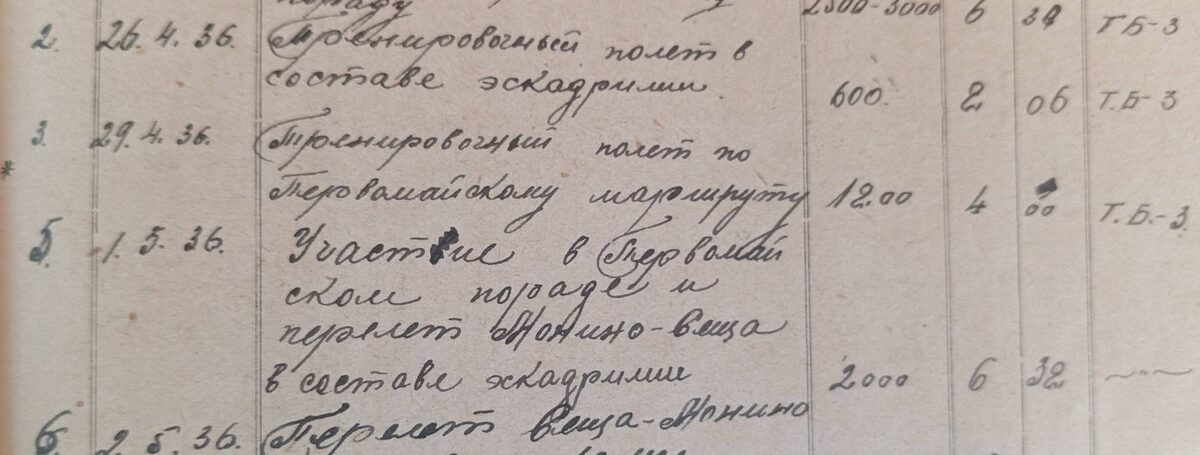 пораду 2500-3000 6 39 Т Б-3
2. 26. 4. 36. Тренировочный полет в
составе эскадрилии 600. 2 06 Т.Б-3
3. 29. 4. 36. Тренировочный полет по
* Первомайскому маршруту 12.00 4 00 Т.Б.-3.
5. 1. 5. 36. Участие в Первомай
ском пораде и
перелет Монино-Веща
в составе эскадрилии 2000 6 32 —〃—
6 2. 5. 36. Перелет Веща-Монино